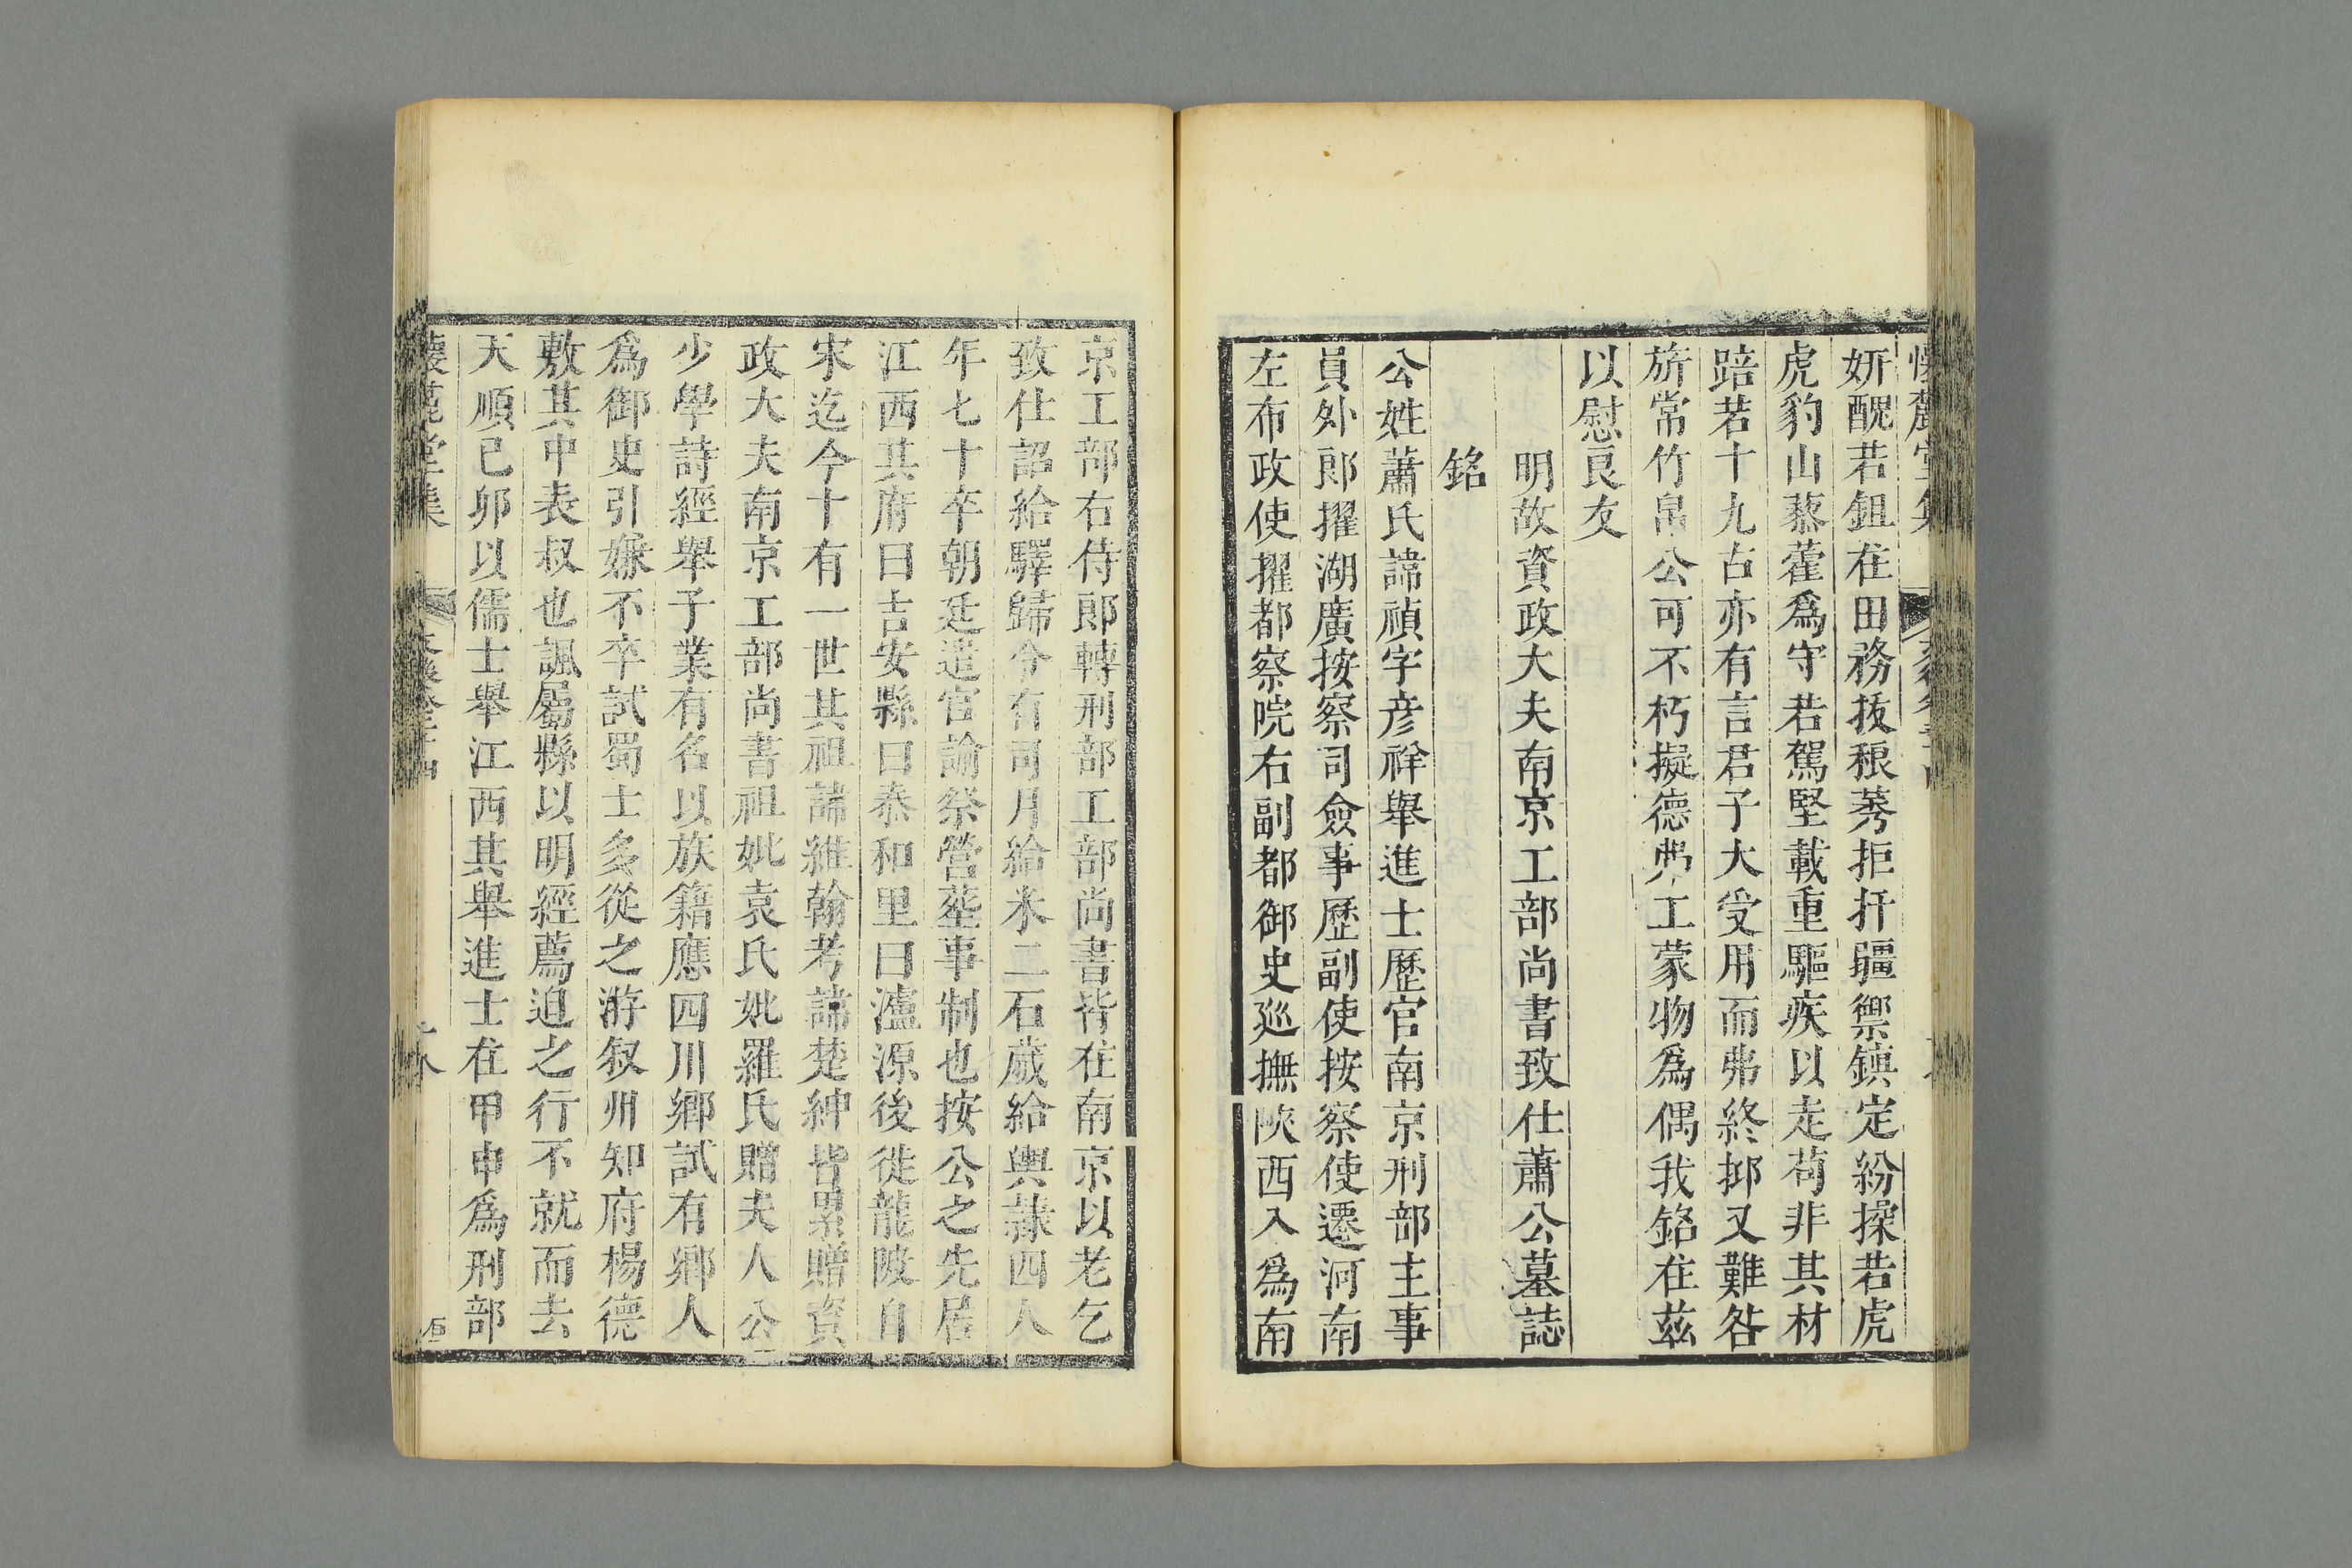 懷麓堂集
妍醜若鉏在田務拔稂莠拒扞疆禦鎮定紛擾若虎
虎豹山藜藿爲守若駕堅載重驅疾以走苟非其材
踣若十九古亦有言君子大受用而弗終抑又難咎
旂常竹帛公可不朽擬德弗工蒙物爲偶我銘在茲
以慰良友
明故資政大夫南京工部尚書致仕蕭公墓誌
銘
公姓蕭氏諱禎字彦祥舉進士歷官南京刑部主事
員外郎擢湖廣按察司僉事歷副使按察使遷河南
左布政使擢都察院右副都御史廵撫陝西入爲南
京工部右侍郎轉刑部工部尚書皆在南京以老乞
致仕詔給驛歸令有司月給米二石歲給輿隸四人
年七十卒朝廷遣官諭祭營塟事制也按公之先居
江西其府曰吉安縣曰泰和里曰瀘源後徙龍陂自
宋迄今十有一世其祖諱維翰考諱楚紳皆累贈資
政大夫南京工部尚書祖妣袁氏妣羅氏贈夫人公
少學詩經舉子業有名以族籍應四川鄉試有鄉人
爲御史引嫌不卒試蜀士多從之游叙州知府楊德
敷其中表叔也諷屬縣以明經薦迫之行不就而去
天順己卯以儒士舉江西其舉進士在甲申爲刑部
懷麓堂集